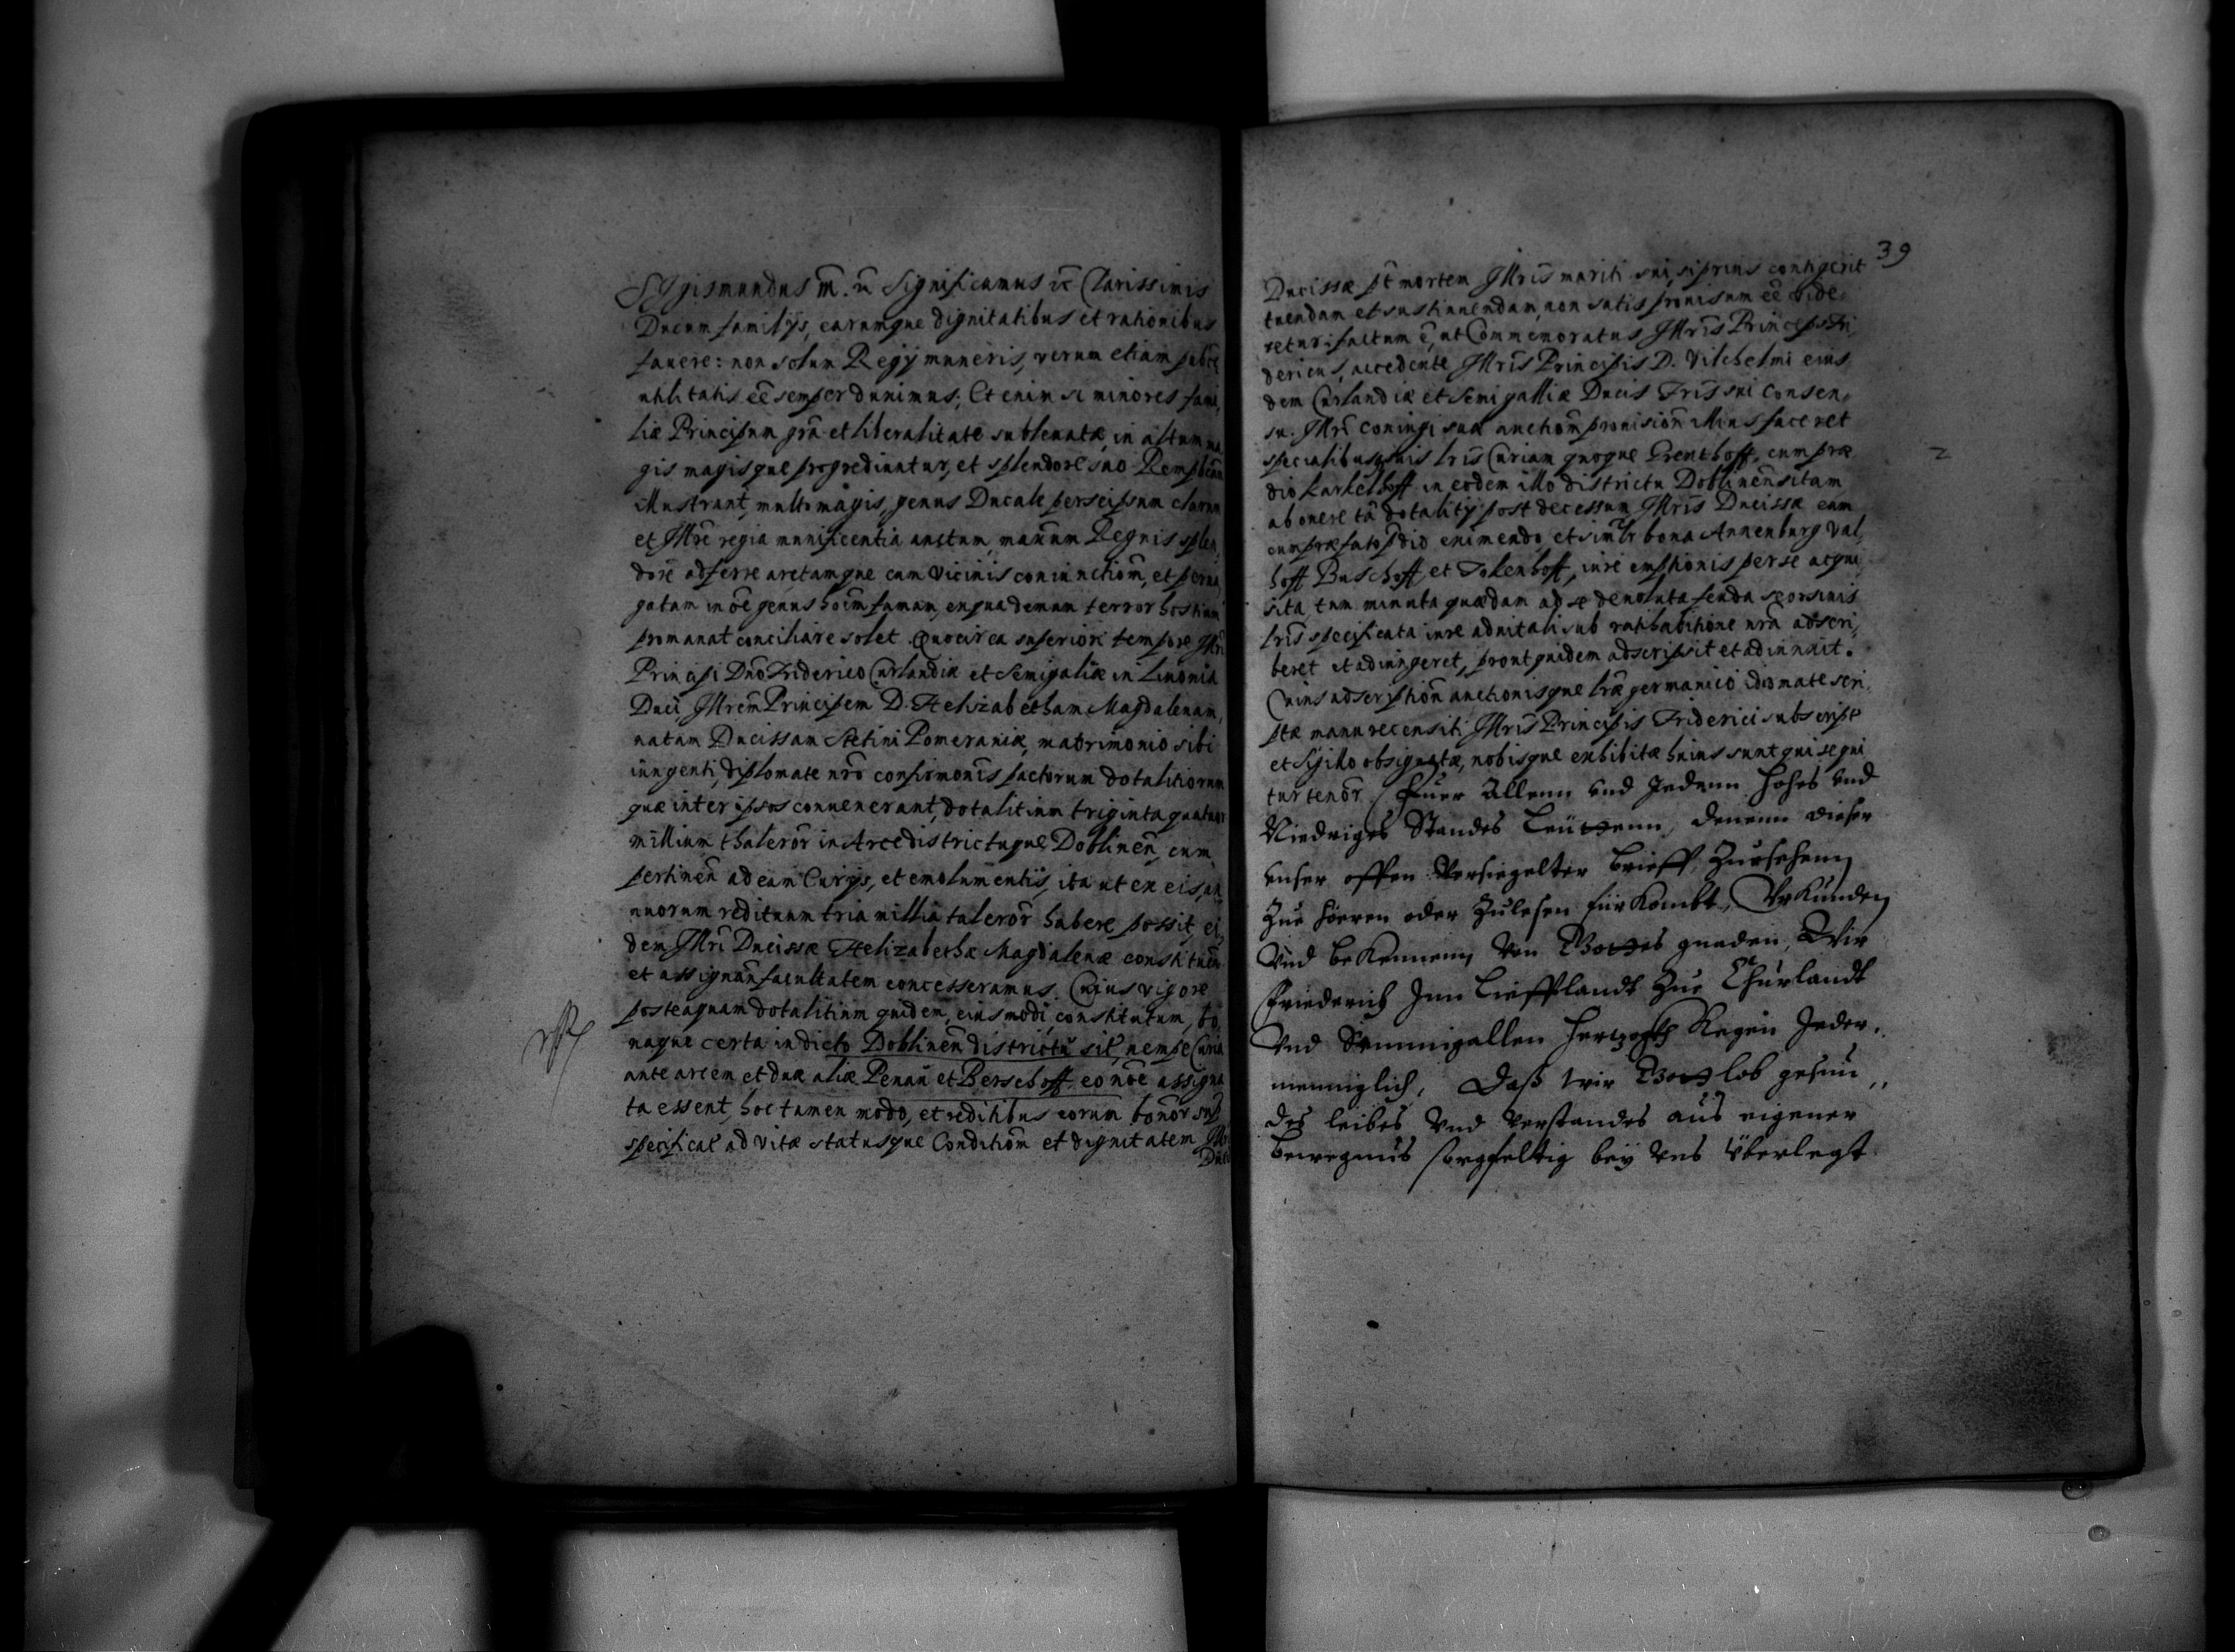 Sygismundus m. &c. Significamus &c. Clarissimis
Ducum familijs, earumque dignitatibus et rationibus
fauere: non solum Regij muneris, verum etiam pubcẽ
utilitatis eẽ semper duximus; Etenim si minores fami,
liæ Principum grã et liberalitate subleuatæ, in altum ma
gis magisque progrediuntur, et splendore suo Rempbcam
illustrant, multo magis, genus Ducale per se ipsum clarum
et Illrẽ regia munificentia auctum, maũum Regnis splen,
dorẽ adferre arctamque cum vicinis coniunctiõm, et perua
gatam in oẽ genus hoĩm famam, ex qua demum terror hostium
promanat conciliare solet. Quocirca superiori tempore Illri
Principi Dnõ Friderico Curlandiæ et Semigaliæ in Liuonia
Duci Illrẽm Principem D. Helizabetham Magdalenam,
natam Ducissam Stetini Pomeraniæ, matrimonio sibi
iungenti, diplomate nrõ confirmonĩs pactorum dotalitiorum
quæ inter ipsos conuenerant, dotalitium triginta quatuor
millium thalerõr in Arce districtuque Doblinẽn, cum
pertinẽn ad eam Curijs, et emolumentijs, ita ut ex eis, an
nuorum redituum tria millia talerõr habere possit, ei,
dem Illri Ducissæ Helizabethæ Magdalenæ constituẽn
et assignãn facultatem concesseramus. Cuius vigore
posteaquam dotalitium quidem, eiusmodi constitutum, bo,
naque certa in dicto Doblinẽn districtu sit, nempe Curia
ante arcem et duæ aliæ Penau et Berschoff eo noẽ assigna
ta essent, hoc tamen modo, et reditibus eorum bonõr sup
specificat ad vitæ statusque Conditiõm et dignitatem Illris
Duci
39
Ducissæ pt mortem Illrĩs mariti sui, si prius contigerit
tuendam et sustinendam, non satis prouisum eẽ vide,
retur: factum ẽ, ut Commemoratus Illrĩs Princeps Fri,
dericus, accedente Illrĩs Principis D. Vilhelmi eius
dem Curlandiæ et Semigalliæ Ducis Frĩs sui consen,
su. Illri coniugi suæ auctiõm prouisiõm illius faceret
specialibusque suis lrĩs Curiam quoque Grenthoff, cum præ
dio Karkelhoff in eodem illo districtu Doblinẽn sitam
ab onere tã dotalitij post decessum Illrĩs Ducissæ eam
cum præfato pdio eximendo, et simlr bona Annenburg Val,
hoff Buschoff et Tokenhoff, iure emptionis per se acqui
sita, tum minuta quædam ad se deuoluta feuda seorsiuis
lrĩs specificata iure aduitali sub ratihabitione nrã adscri,
beret et adiungeret, prout quidem adscripsit et adiunxit.
Cuius adscriptiõn auctionisque lræ germanico idiomate scri,
ptæ manu recensiti Illrĩs Principis Friderici subscriptæ
et Sigillo obsignatæ, nobisque exhibitæ huius sunt qui sequi
tur tenõr. Fuer Allenn vnd Jedenn hohes vnd
Niedriges Standes Leüttenn, denenn dieser
vnser offen Versiegelter brieff, Zuersehenn
Zue hoeren oder Zulesen fürkombt, Vrkunden
Vnd bekennenn Von Gottes gnaden, Wir
Friederich Inn Liefflandt Zue Churlandt
Vnd Semmigallen Hertzogk Kegen Jeder,
menniglich, Daß wir Gott lob gesun,,
des leibes Vnd verstandes aus eigener
bewegnus sorgfeltig bey Vns Überlegt